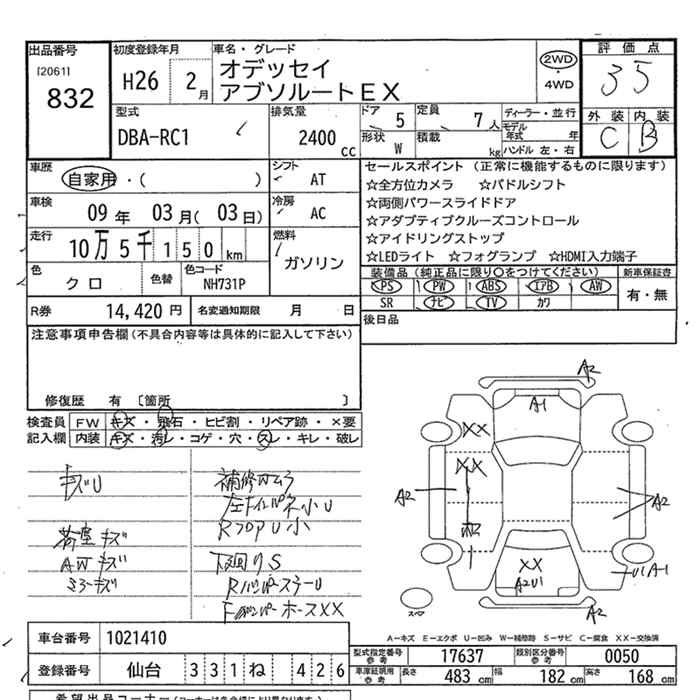 出品番号
[2061]
832
初度登録年月
H26 2月
車名・グレード
オデッセイ
アブソルートEX
2WD
4WD
評価点
35
外装 内装
C B
型式
DBA-RC1
排気量
2400 cc
ドア 5
定員 7人
形状 W
積載 kg
ディーラー・並行
モデル年式 年
ハンドル 左・右
車歴
自家用・( )
シフト
AT
車検
09年 03月(03日)
冷房
AC
走行
10万5千150km
燃料
ガソリン
色
クロ
色替
色コード
NH731P
R券 14,420円
名変通知期限 月 日
セールスポイント (正常に機能するものに限ります)
☆全方位カメラ ☆パドルシフト
☆両側パワースライドドア
☆アダプティブクルーズコントロール
☆アイドリングストップ
☆LEDライト ☆フォグランプ ☆HDMI入力端子
装備品(純正品に限り○をつけてください)
新車保証書
PS PW ABS エアB AW
SR ナビ TV カワ
有・無
後日品
注意事項申告欄(不具合内容等は具体的に記入して下さい)
修復歴 有 [箇所 ]
検査員記入欄
FW キズ・飛石・ヒビ割・リペア跡・×要
内装 キズ・汚レ・コゲ・穴・スレ・キレ・破レ
キズU
補修ウムラ
左Fインパネ小U
荷室キズ
RフロアU小
AWキズ
下廻りS
ミラーキズ
RバンパースチールU
XX
A1
A2
XX
XX
A2
A2
XX
A2U1
U1A1
A2
A－キズ E－エクボ U－凹み W－補修跡 S－サビ C－腐食 XX－交換済
車台番号 1021410
登録番号 仙台 331 ね 426
型式指定番号 参考 17637
類別区分番号 参考 0050
車庫証明用 参考 長さ 483cm 幅 182cm 高さ 168cm
希望出品コーナー